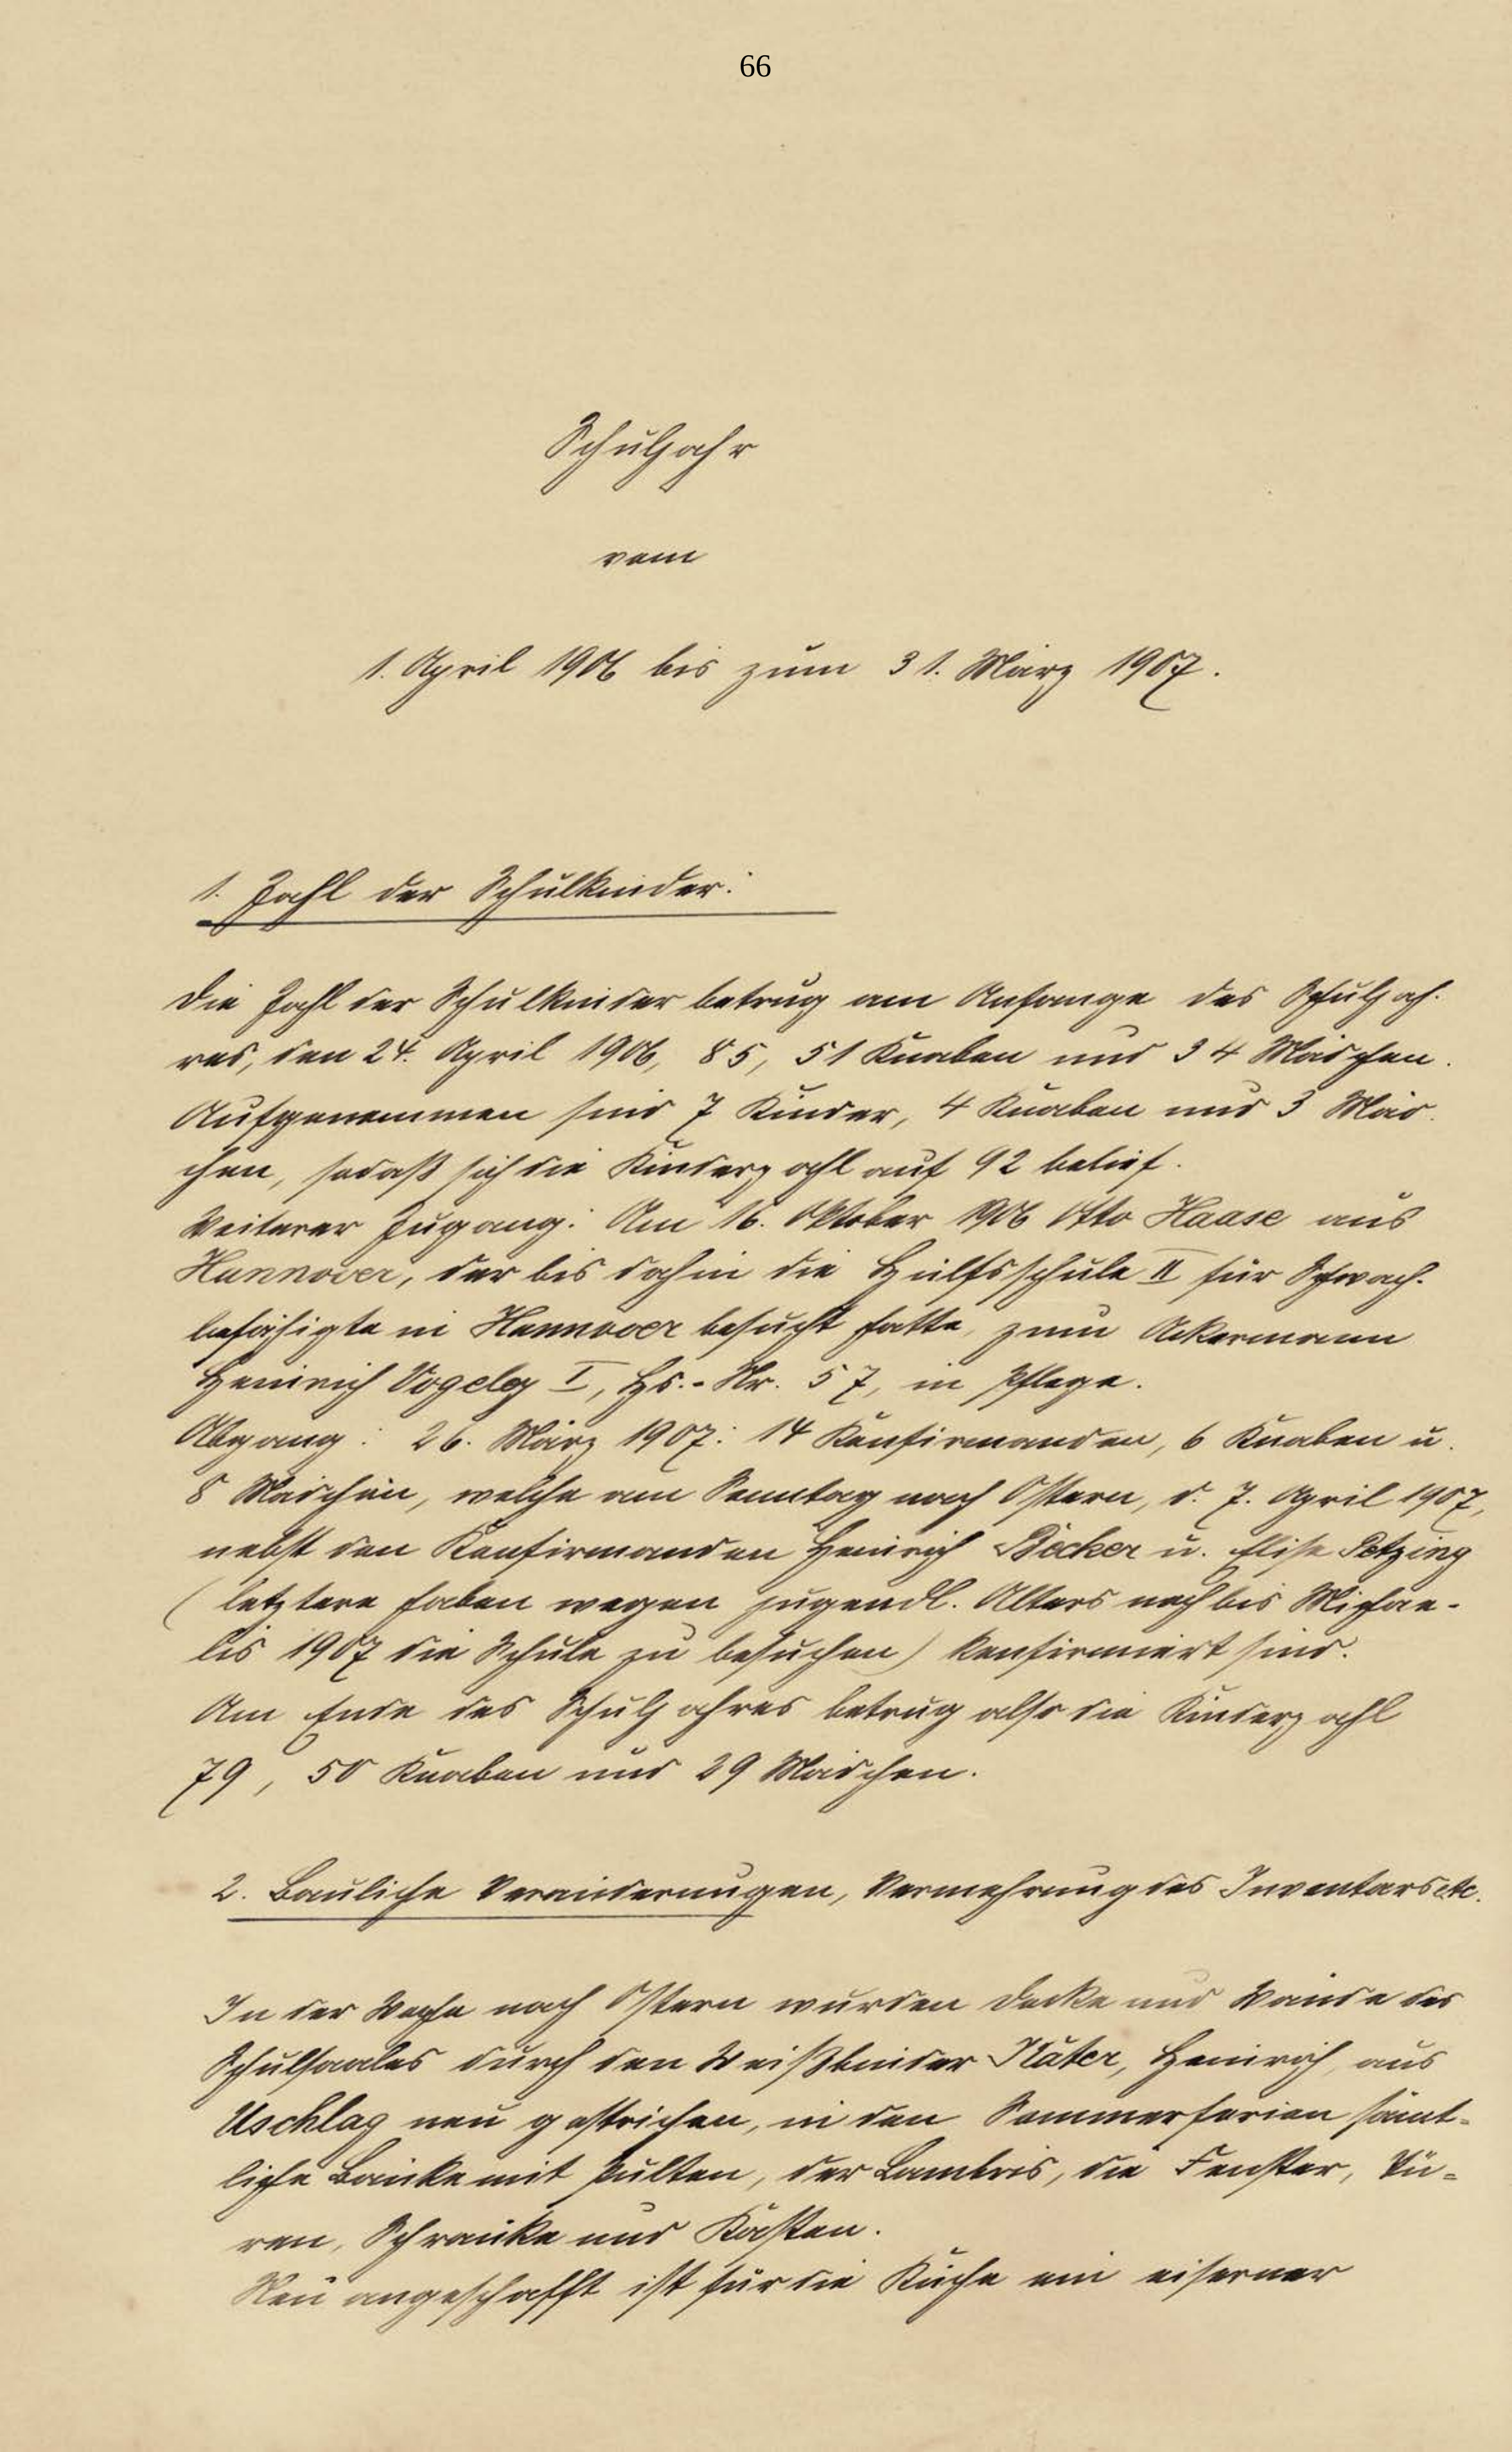 66
Schuljahr
vom
1. April 1906 bis zum 31. März 1907.
1. Zahl der Schulkinder:
Die Zahl der Schulkinder betrug am Anfange des Schuljah-
res, den 24. April 1906, 85, 51 Knaben und 34 Mädchen.
Aufgenommen sind 7 Kinder, 4 Knaben und 3 Mäd-
chen, sodaß sich die Kinderzahl auf 92 belief.
Weiterer Zugang: Am 16. Oktober 1906 Otto Haase aus
Hannover, der bis dahin die Hülfsschule II für Schwach-
befähigte in Hannover besucht hatte, zum Ackermann
Heinrich Vogeley I, Hs.-Nr. 57, in Pflege.
Abgang: 26. März 1907: 14 Konfirmanden, 6 Knaben u.
8 Mädchen, welche am Sonntag nach Ostern, d. 7. April 1907,
nebst den Konfirmanden Heinrich Becker u. Elise Petzing
(letztere haben wegen jugendl. Alters noch bis Michae-
lis 1907 die Schule zu besuchen) konfirmiert sind.
Am Ende des Schuljahres betrug also die Kinderzahl
79, 50 Knaben und 29 Mädchen.
2. Bauliche Veränderungen, Vermehrung des Inventars etc.
In der Woche nach Ostern wurden Decke und Wände des
Schulsaales durch den Weißbinder Käter, Heinrich, aus
Uschlag neu gestrichen, in den Sommerferien sämt-
liche Bänke mit Pulten, der Lambris, die Fenster, Tü-
ren, Schränke und Kästen.
Neu angeschafft ist für die Küche ein eiserner